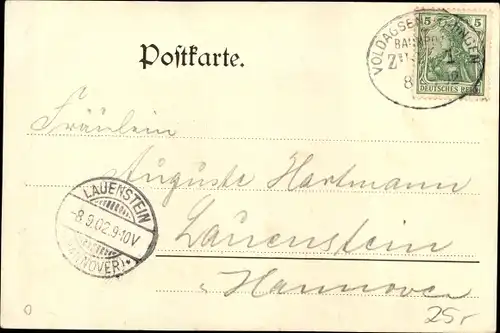 Postkarte.
5 5
DEUTSCHES REICH
VOLDAGSEN
BAHNPOST
8 02
Fräulein
Auguste Hartmann
Lauenstein
Hannover
LAUENSTEIN
-8.9.02.9-10V
(HANNOVER)*
25,-